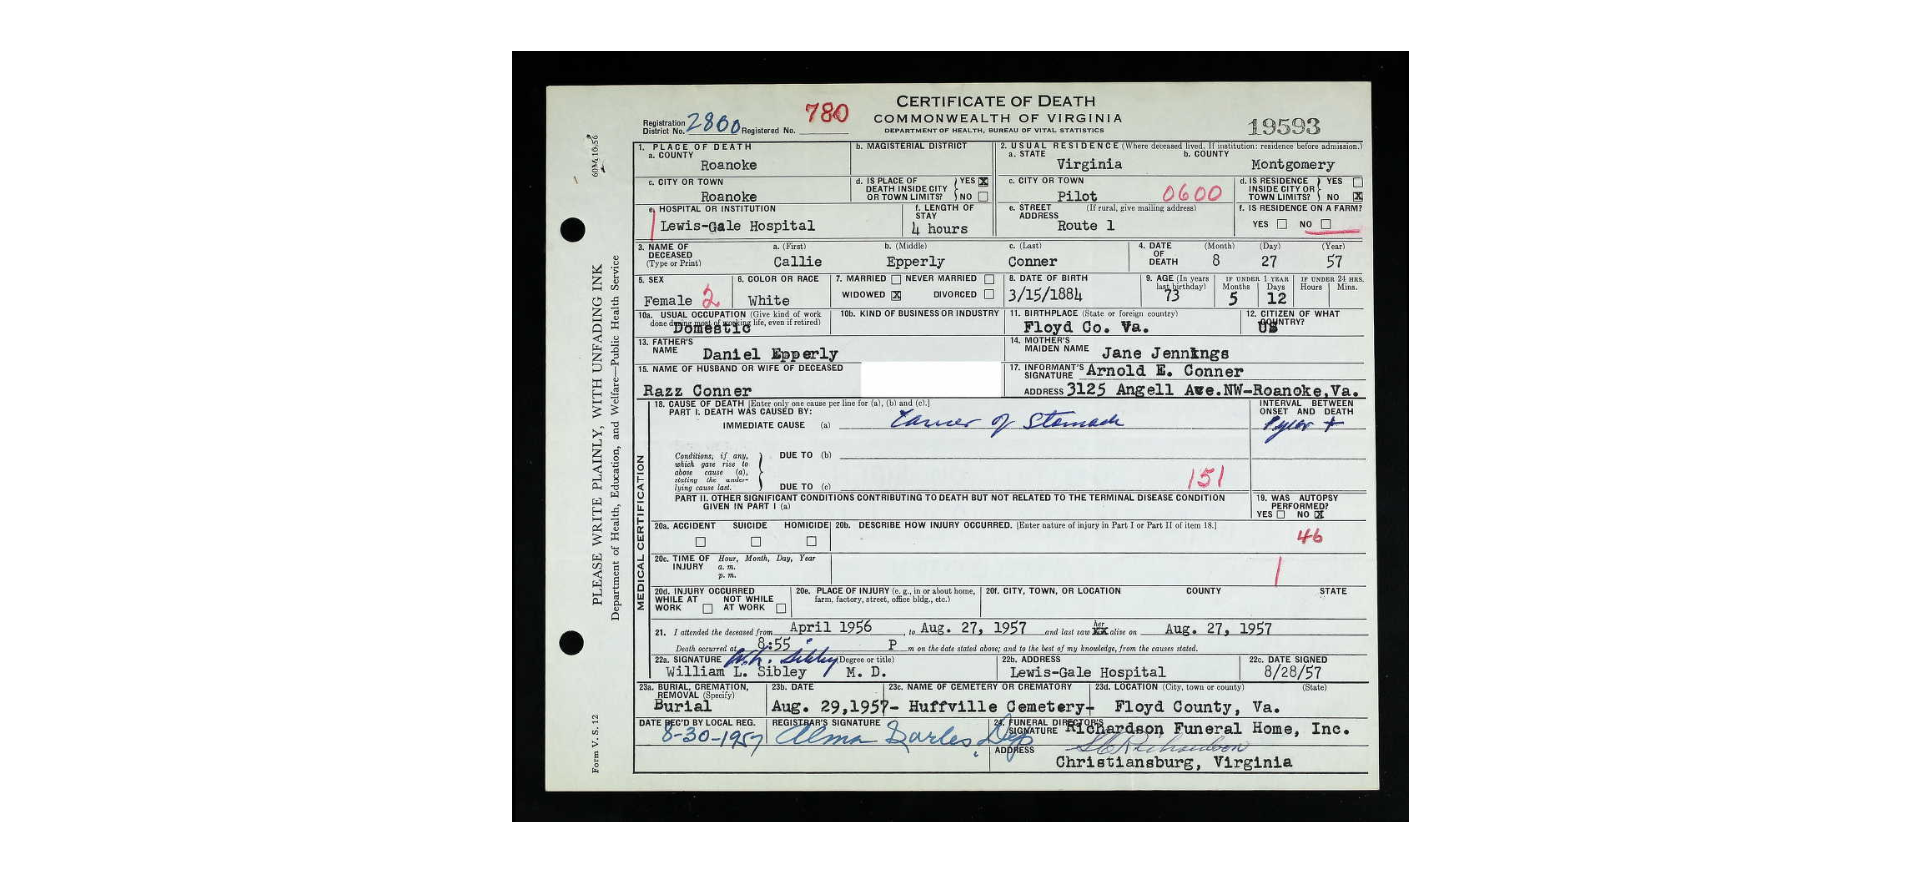 CERTIFICATE OF DEATH
COMMONWEALTH OF VIRGINIA
DEPARTMENT OF HEALTH, BUREAU OF VITAL STATISTICS
Registration District No. 2800 Registered No. 780
19593
1. PLACE OF DEATH
a. COUNTY Roanoke
b. MAGISTERIAL DISTRICT
2. USUAL RESIDENCE (Where deceased lived. If institution: residence before admission.)
a. STATE Virginia
b. COUNTY Montgomery
c. CITY OR TOWN Roanoke
d. IS PLACE OF DEATH INSIDE CITY OR TOWN LIMITS? YES X NO
c. CITY OR TOWN Pilot 0600
d. IS RESIDENCE INSIDE CITY OR TOWN LIMITS? YES NO X
e. HOSPITAL OR INSTITUTION Lewis-Gale Hospital
f. LENGTH OF STAY 4 hours
e. STREET ADDRESS (If rural, give mailing address) Route 1
f. IS RESIDENCE ON A FARM? YES NO
3. NAME OF DECEASED (Type or Print)
a. (First) Callie
b. (Middle) Epperly
c. (Last) Conner
4. DATE OF DEATH (Month) 8 (Day) 27 (Year) 57
5. SEX Female 2
6. COLOR OR RACE White
7. MARRIED NEVER MARRIED WIDOWED X DIVORCED
8. DATE OF BIRTH 3/15/1884
9. AGE (In years last birthday) 73
IF UNDER 1 YEAR Months 5 Days 12
IF UNDER 24 HRS. Hours Mins.
10a. USUAL OCCUPATION (Give kind of work done during most of working life, even if retired) Domestic
10b. KIND OF BUSINESS OR INDUSTRY
11. BIRTHPLACE (State or foreign country) Floyd Co. Va.
12. CITIZEN OF WHAT COUNTRY? US
13. FATHER'S NAME Daniel Epperly
14. MOTHER'S MAIDEN NAME Jane Jennings
15. NAME OF HUSBAND OR WIFE OF DECEASED Razz Conner
17. INFORMANT'S SIGNATURE Arnold E. Conner
ADDRESS 3125 Angell Ave.NW-Roanoke,Va.
18. CAUSE OF DEATH [Enter only one cause per line for (a), (b) and (c).]
PART I. DEATH WAS CAUSED BY:
IMMEDIATE CAUSE (a) Cancer of Stomach
INTERVAL BETWEEN ONSET AND DEATH
Conditions, if any, which gave rise to above cause (a), stating the underlying cause last.
DUE TO (b)
DUE TO (c) 151
PART II. OTHER SIGNIFICANT CONDITIONS CONTRIBUTING TO DEATH BUT NOT RELATED TO THE TERMINAL DISEASE CONDITION GIVEN IN PART I (a)
19. WAS AUTOPSY PERFORMED? YES NO X
20a. ACCIDENT SUICIDE HOMICIDE
20b. DESCRIBE HOW INJURY OCCURRED. [Enter nature of injury in Part I or Part II of item 18.]
46
20c. TIME OF INJURY Hour, Month, Day, Year a. m. p. m.
20d. INJURY OCCURRED WHILE AT WORK NOT WHILE AT WORK
20e. PLACE OF INJURY (e. g., in or about home, farm, factory, street, office bldg., etc.)
20f. CITY, TOWN, OR LOCATION COUNTY STATE
21. I attended the deceased from April 1956, to Aug. 27, 1957 and last saw her alive on Aug. 27, 1957
Death occurred at 8:55 P m on the date stated above; and to the best of my knowledge, from the causes stated.
22a. SIGNATURE W. L. Sibley (Degree or title)
William L. Sibley M. D.
22b. ADDRESS Lewis-Gale Hospital
22c. DATE SIGNED 8/28/57
23a. BURIAL, CREMATION, REMOVAL (Specify) Burial
23b. DATE Aug. 29,1957-
23c. NAME OF CEMETERY OR CREMATORY Huffville Cemetery-
23d. LOCATION (City, town or county) (State) Floyd County, Va.
DATE REC'D BY LOCAL REG. 8-30-1957
REGISTRAR'S SIGNATURE Alma
24. FUNERAL DIRECTOR'S SIGNATURE Richardson Funeral Home, Inc.
ADDRESS Christiansburg, Virginia
MEDICAL CERTIFICATION
PLEASE WRITE PLAINLY, WITH UNFADING INK
Department of Health, Education, and Welfare—Public Health Service
Form V. S. 12